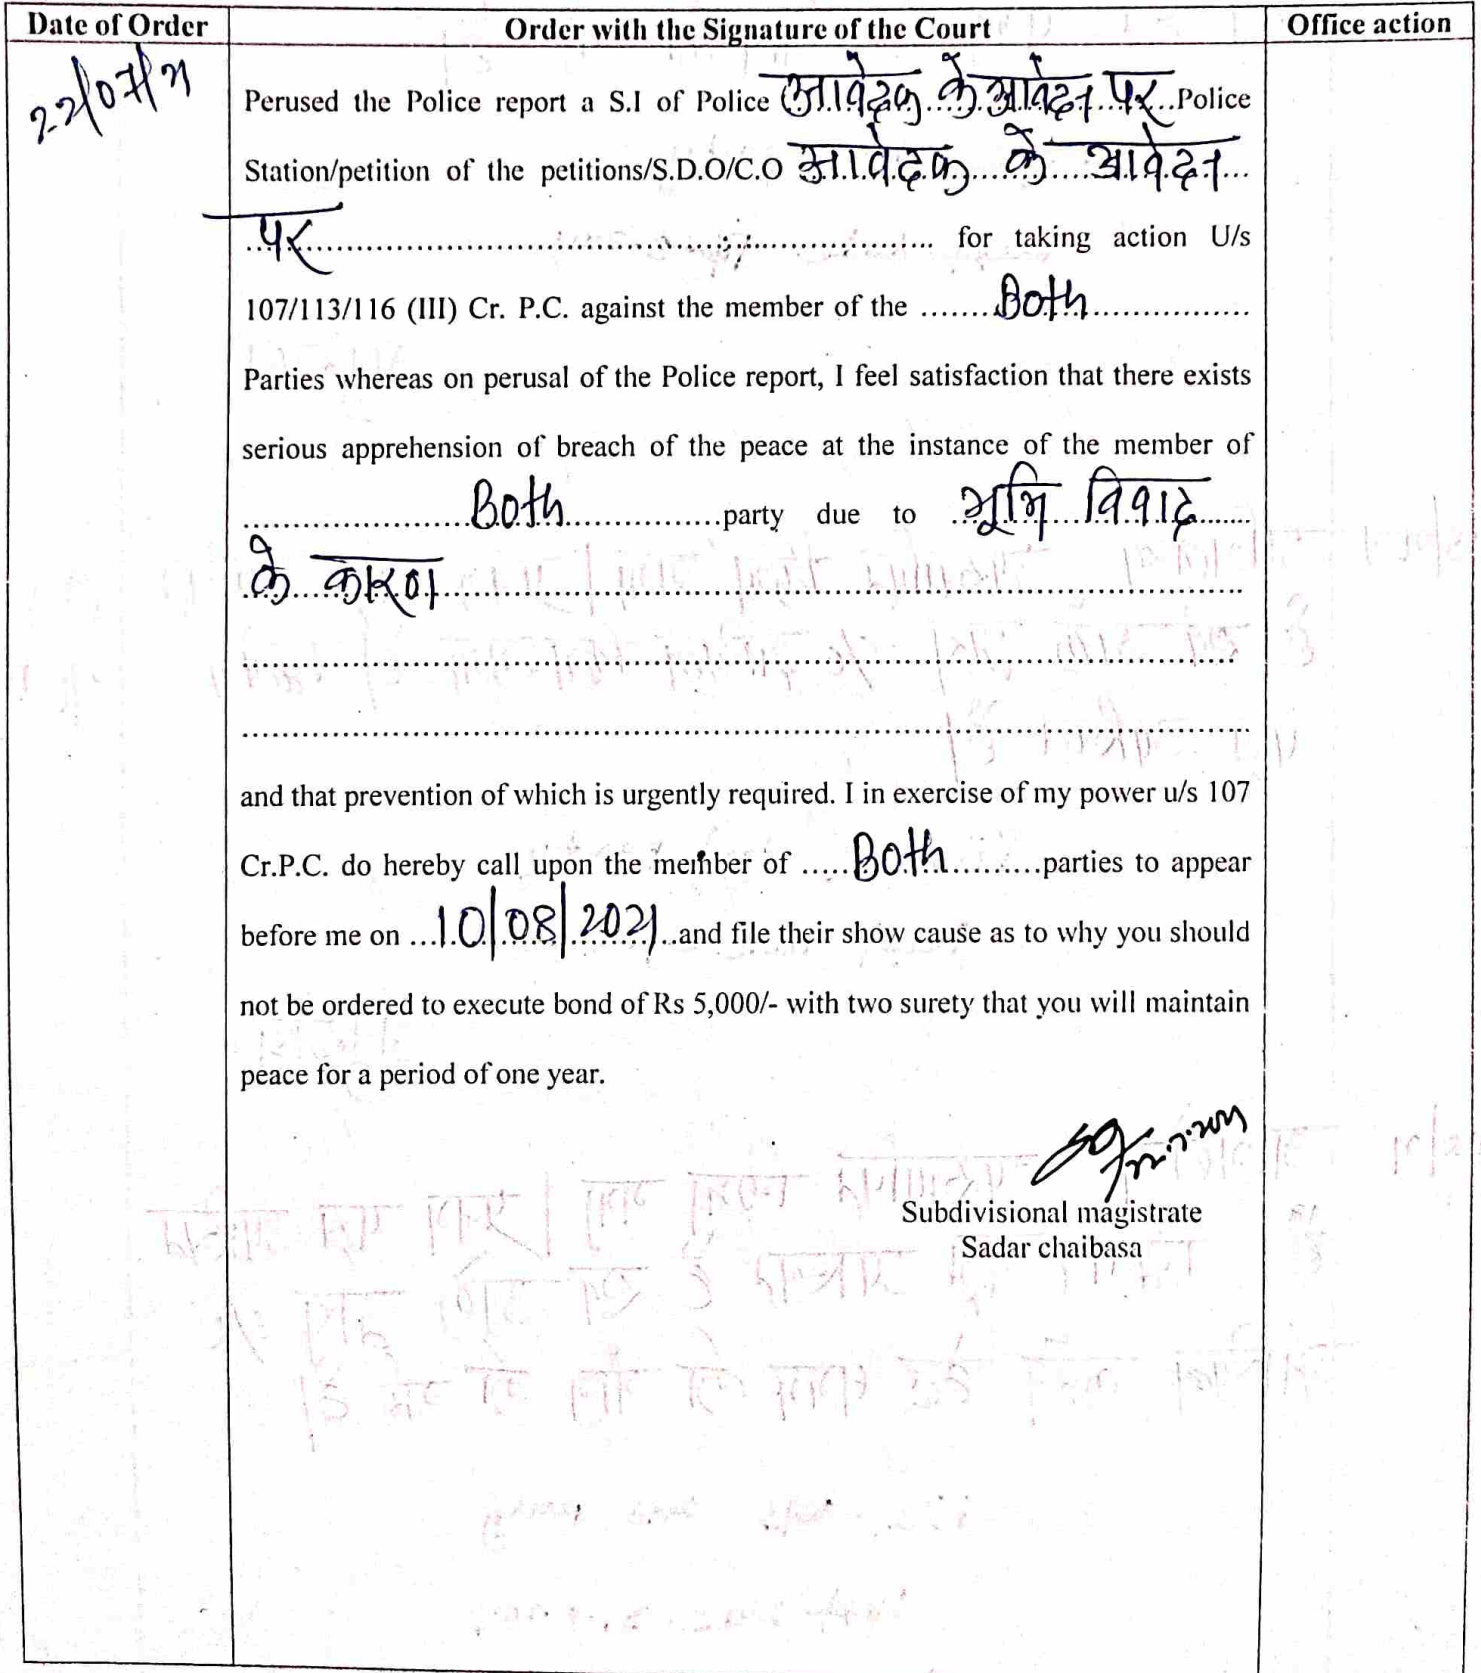 Date of Order Order with the Signature of the Court Office action
22/07/21
Perused the Police report a S.I of Police आवेदक के आवेदन पर Police
Station/petition of the petitions/S.D.O/C.O आवेदक के आवेदन
पर for taking action U/s
107/113/116 (III) Cr. P.C. against the member of the Both
Parties whereas on perusal of the Police report, I feel satisfaction that there exists
serious apprehension of breach of the peace at the instance of the member of
Both party due to भूमि विवाद
के कारण
and that prevention of which is urgently required. I in exercise of my power u/s 107
Cr.P.C. do hereby call upon the member of Both parties to appear
before me on 10/08/2021 and file their show cause as to why you should
not be ordered to execute bond of Rs 5,000/- with two surety that you will maintain
peace for a period of one year.
Subdivisional magistrate
Sadar chaibasa